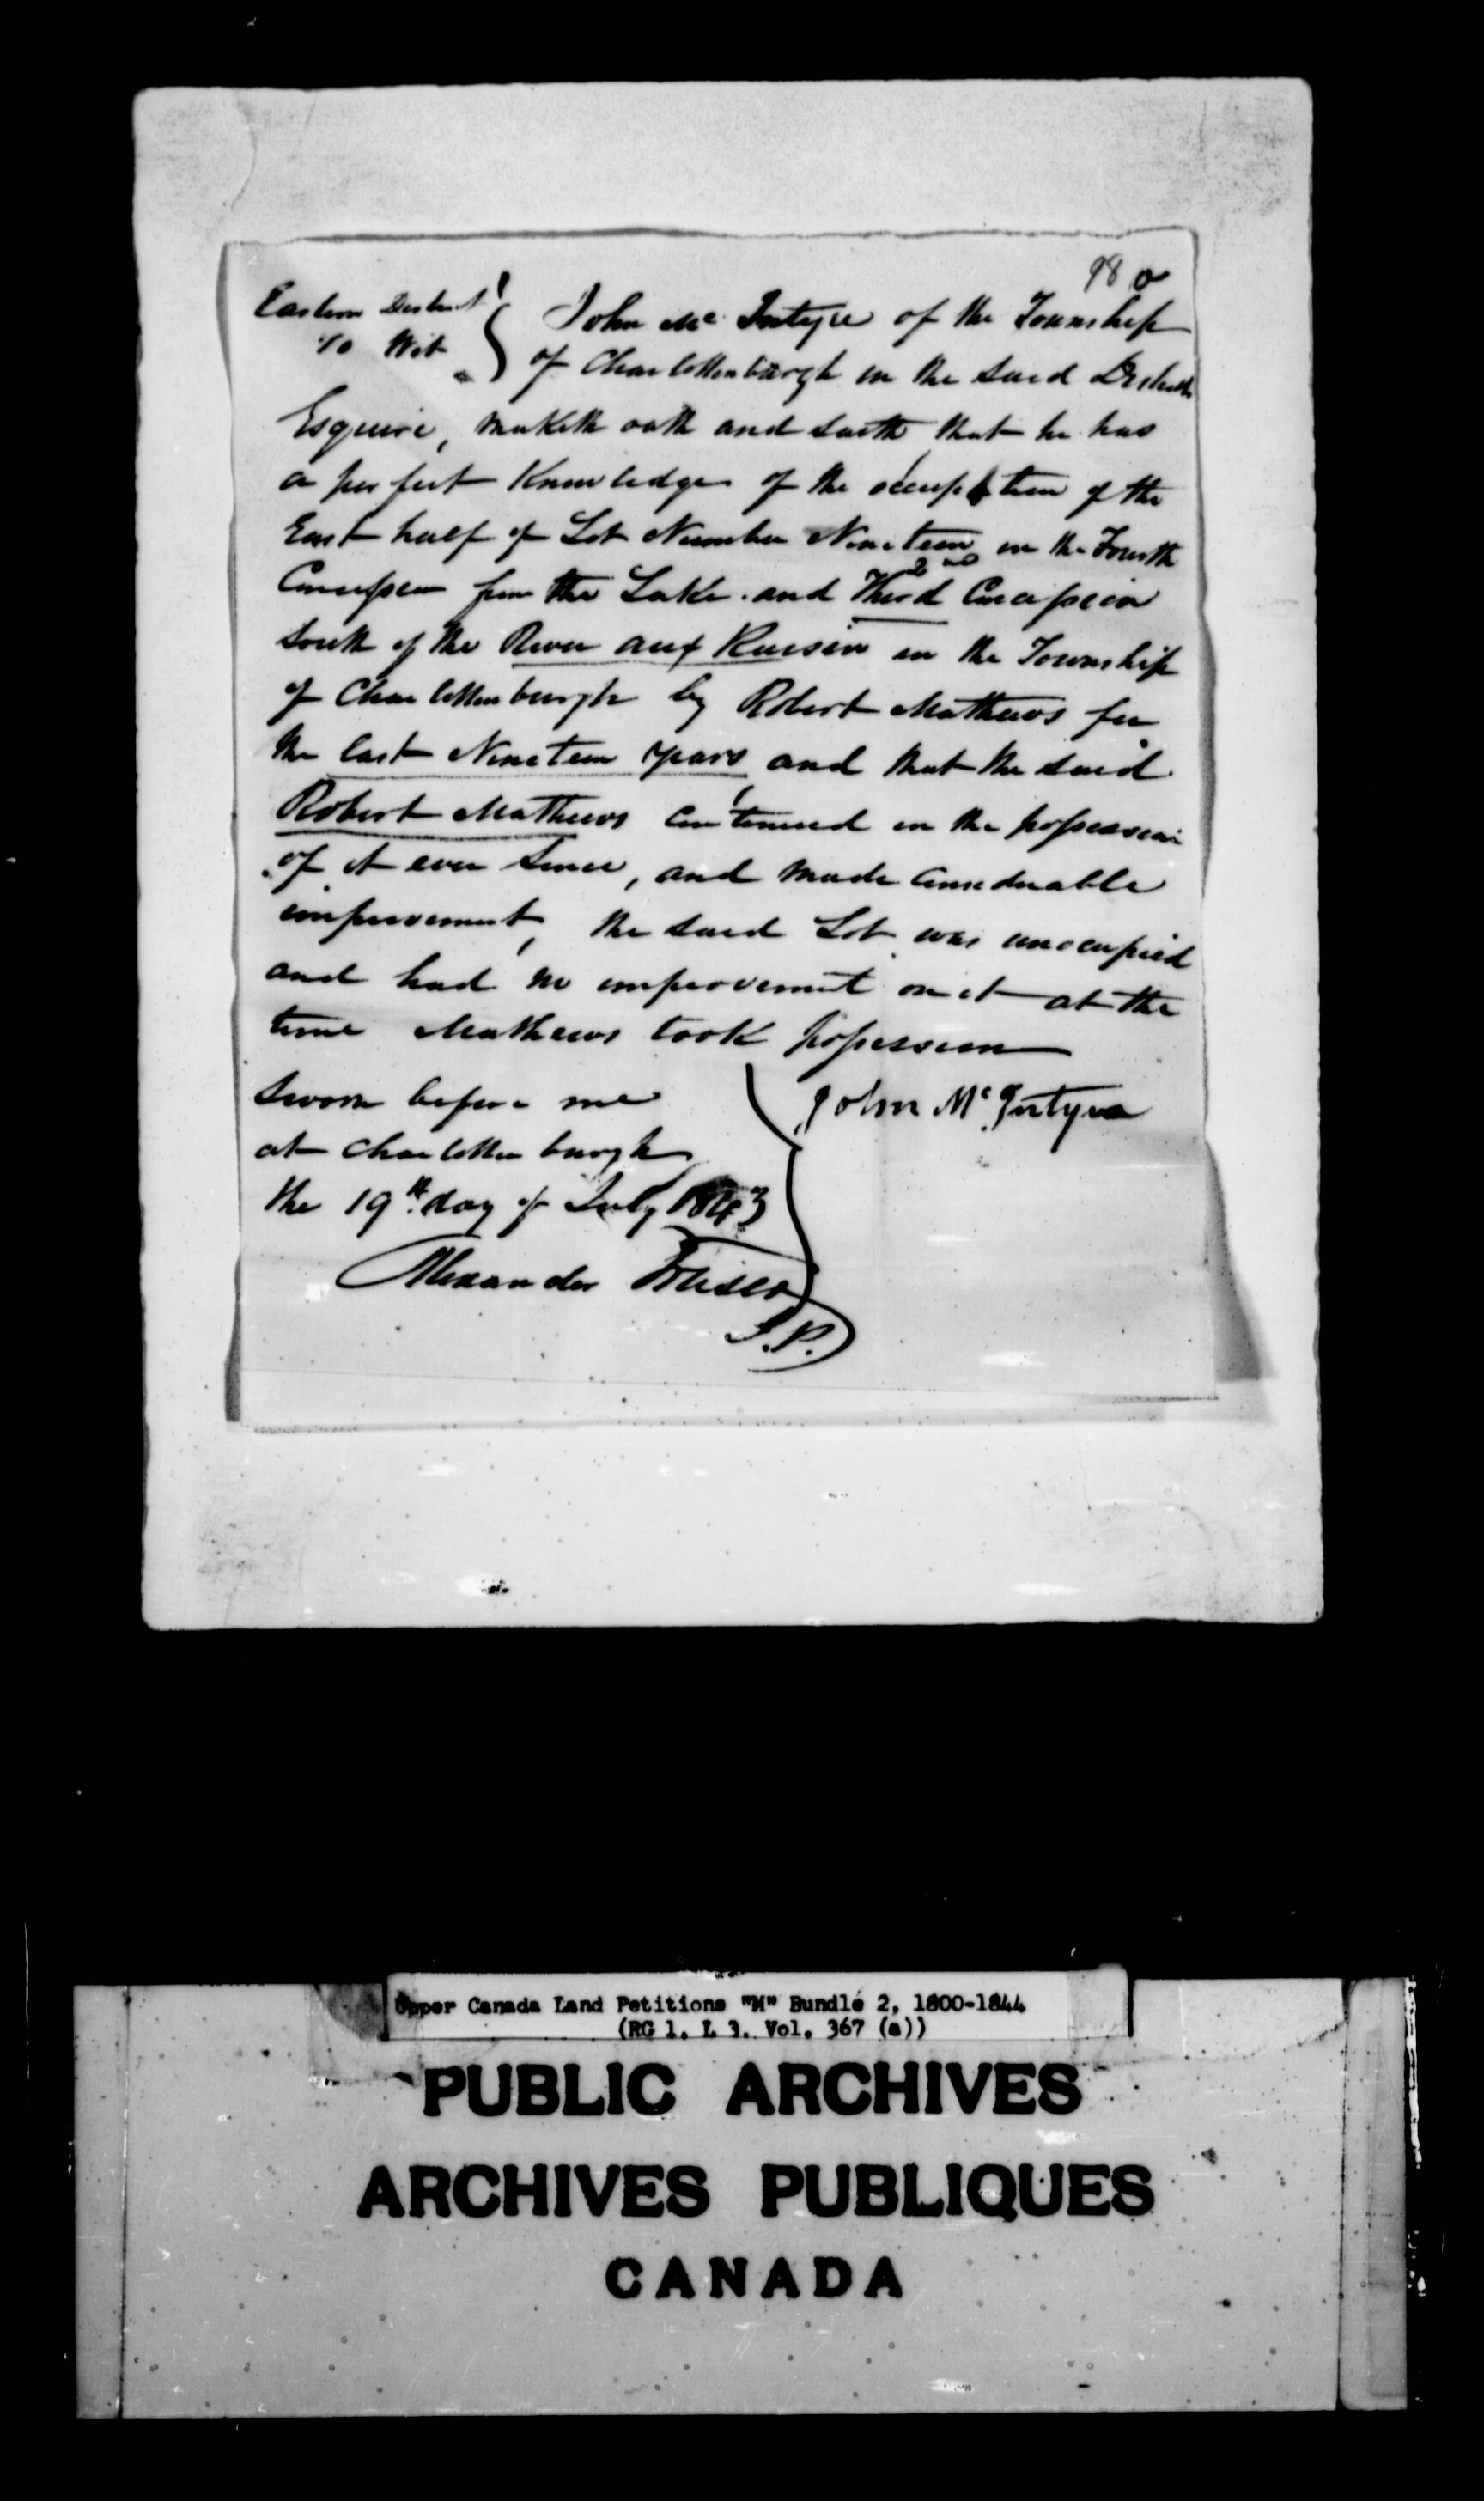 98 o
Eastern District } John McIntyre of the Township
To Wit } of Charlottenburgh in the said District
Esquire, maketh oath and saith that he has
a perfect Knowledge of the occupation of the
East half of Lot Number Nineteen in the Fourth
2nd
Concession from the Lake and Third Concession
South of the River aux Raisin in the Township
of Charlottenburgh by Robert Mathews for
the last Nineteen years and that the said
Robert Mathews continued in the possession
of it ever since, and made considerable
improvement, the said Lot was unoccupied
and had no improvement on it at the
time Mathews took possession
Sworn before me } John McIntyre
at Charlottenburgh
the 19th day of July 1843
Alexander Fraser
J.P.
Upper Canada Land Petitions "M" Bundle 2, 1800-1844
(RG 1, L 3, Vol. 367 (a))
PUBLIC ARCHIVES
ARCHIVES PUBLIQUES
CANADA